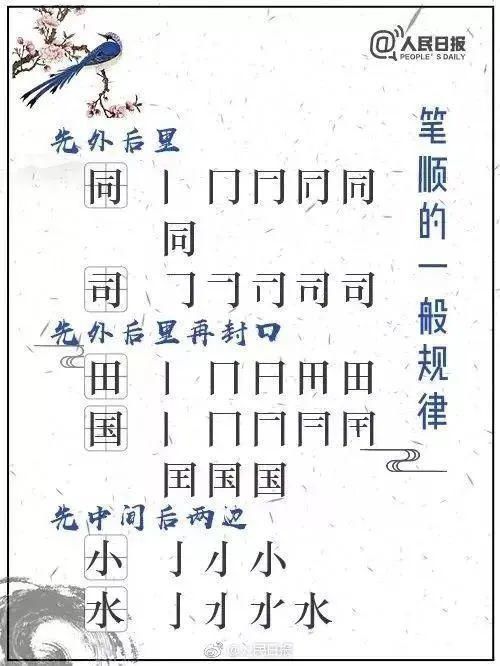 @人民日报
PEOPLE'S DAILY
笔顺的一般规律
先外后里
同 丨 冂 冂 同 同
同
司 𠃌 司 司 司
先外后里再封口
田 丨 冂 日 田 田
国 丨 冂
国 国
先中间后两边
小 亅 小
水 亅 水
@人民日报